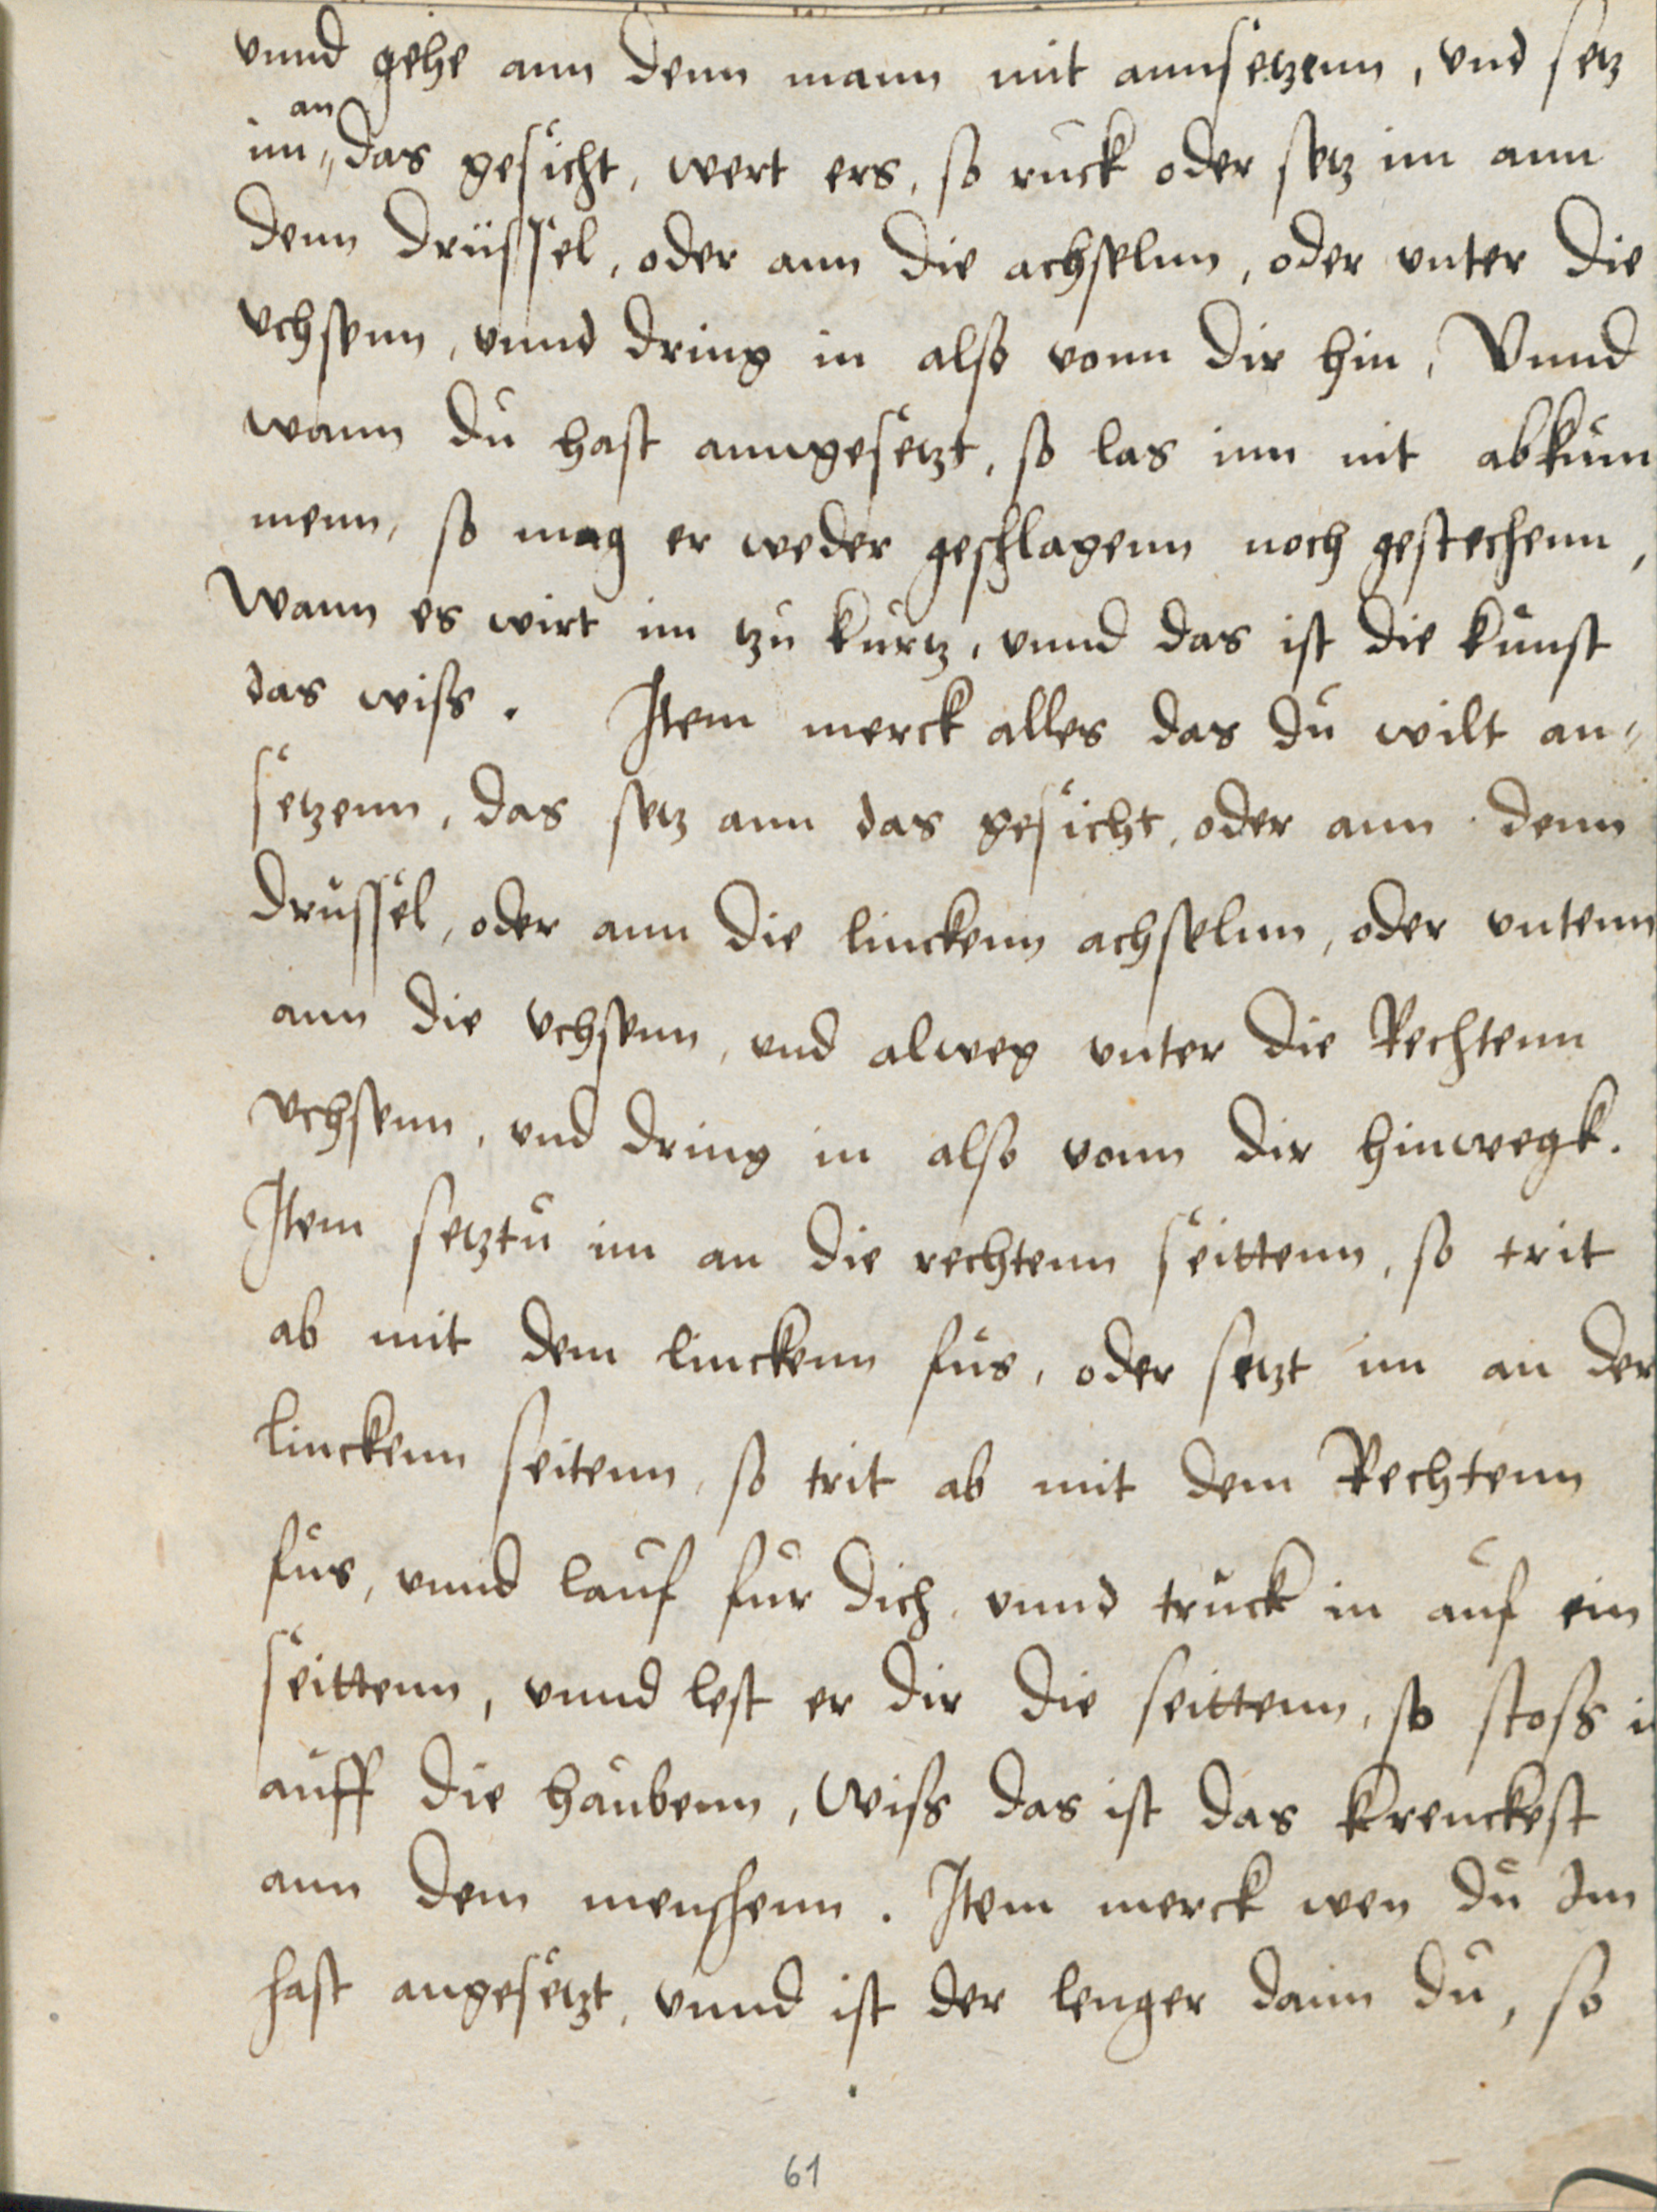 vnnd gehe ann denn mann mit annsetzenn, vnd setz
an
im das gesicht, wert ers, so ruck oder setz im ann
denn drüssel, oder ann die achselnn, oder vnter die
vchsenn, vnnd dring in also vonn dir hin, Vnnd
wann du hast anngesetzt, so las inn nit abkum
menn, so mag er weder geschlagenn noch gestechenn,
Wann es wirt im tzu kurtz, vnnd das ist die kunst
das wiss. Item merck alles das du wilt an=
setzenn, das setz ann das gesicht, oder ann denn
drussel, oder ann die linckenn achselnn, oder vntenn
ann die vchsenn, vnd alweg vnter die Rechtenn
vchsenn, vnd dring in also vonn dir hinwegk.
Item setztu im an die rechtenn seittenn, so trit
ab mit dem linckenn fus, oder setzt im an der
linckenn seitenn, so trit ab mit dem Rechtenn
fus, vnnd lauf fur dich, vnnd truck in auf ein
seittenn, vnnd lest er dir die seittenn, so stoss i
auff die haubenn, wiss das ist das krenckest
ann dem menschenn. Item merck wen du Im
hast angesetzt, vnnd ist der lenger dann du, so
61